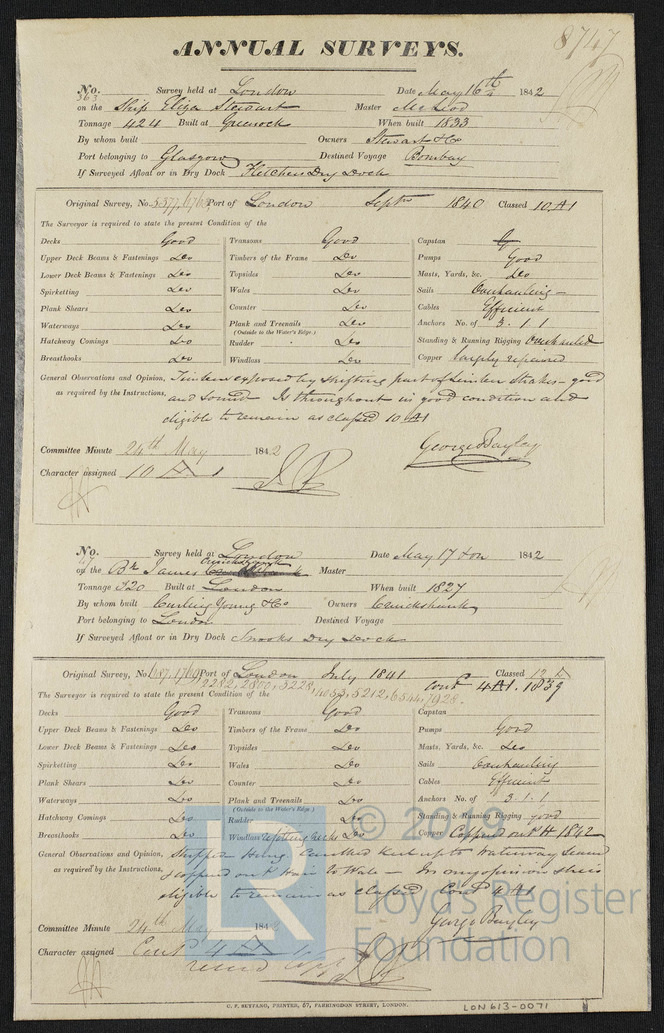 8747
ANNUAL SURVEYS.
No. 363 Survey held at London Date May 16th 1842
on the Ship Eliza Stewart Master McLeod
Tonnage 424 Built at Greenock When built 1833
By whom built Owners Stewart & Co
Port belonging to Glasgow Destined Voyage Bombay
If Surveyed Afloat or in Dry Dock Fletchers Dry Dock
Original Survey, No. 5577, Port of London Septr 1840 Classed 10 A1
The Surveyor is required to state the present Condition of the
Decks Good Transoms Good Capstan
Upper Deck Beams & Fastenings Do Timbers of the Frame Do Pumps Good
Lower Deck Beams & Fastenings Do Topsides Do Masts, Yards, &c. Do
Spirketting Do Wales Do Sails Overhauling
Plank Shears Do Counter Do Cables Efficient
Waterways Do Plank and Treenails Do Anchors No. of 3.1.1
(Outside to the Water's Edge.)
Hatchway Comings Do Rudder Do Standing & Running Rigging Overhauled
Breasthooks Do Windlass Do Copper largely repaired
General Observations and Opinion, Timbers exposed by shifting part of Limber Strakes - good
as required by the Instructions, and sound. Is throughout in good condition and
eligible to remain as classed 10 A1
George Bayley
Committee Minute 24th May 1842
Character assigned 10 A 1
No. Survey held at London Date May 17 1842
on the Bk James Cruickshank Master
Tonnage 320 Built at London When built 1827
By whom built Curling Young & Co Owners Cruickshank
Port belonging to London Destined Voyage
If Surveyed Afloat or in Dry Dock Snooks Dry Dock
Original Survey, No. 687, 1769 Port of London July 1841 Classed 12 A
2282, 2800, 3228, 4053, 5212, 6544, 7928. Cont 4 A1. 1839
The Surveyor is required to state the present Condition of the
Decks Good Transoms Good Capstan
Upper Deck Beams & Fastenings Do Timbers of the Frame Do Pumps Good
Lower Deck Beams & Fastenings Do Topsides Do Masts, Yards, &c. Do
Spirketting Do Wales Do Sails Overhauling
Plank Shears Do Counter Do Cables Efficient
Waterways Do Plank and Treenails Do Anchors No. of 3.1.1
(Outside to the Water's Edge.)
Hatchway Comings Do Rudder Do Standing & Running Rigging good
Breasthooks Do Windlass Do Copper Coppered 1842
General Observations and Opinion, Stripped Caulked Keel up to Waterway Seams
as required by the Instructions, Coppered to Wale - In my opinion she is
eligible to remain as classed Cont 4 A1
George Bayley
Committee Minute 24th May 1842
Character assigned Cont 4 A 1
© 2019
Lloyd's Register
Foundation
LR
C. F. SEYFANG, PRINTER, 67, FARRINGDON STREET, LONDON.
LON613-0071